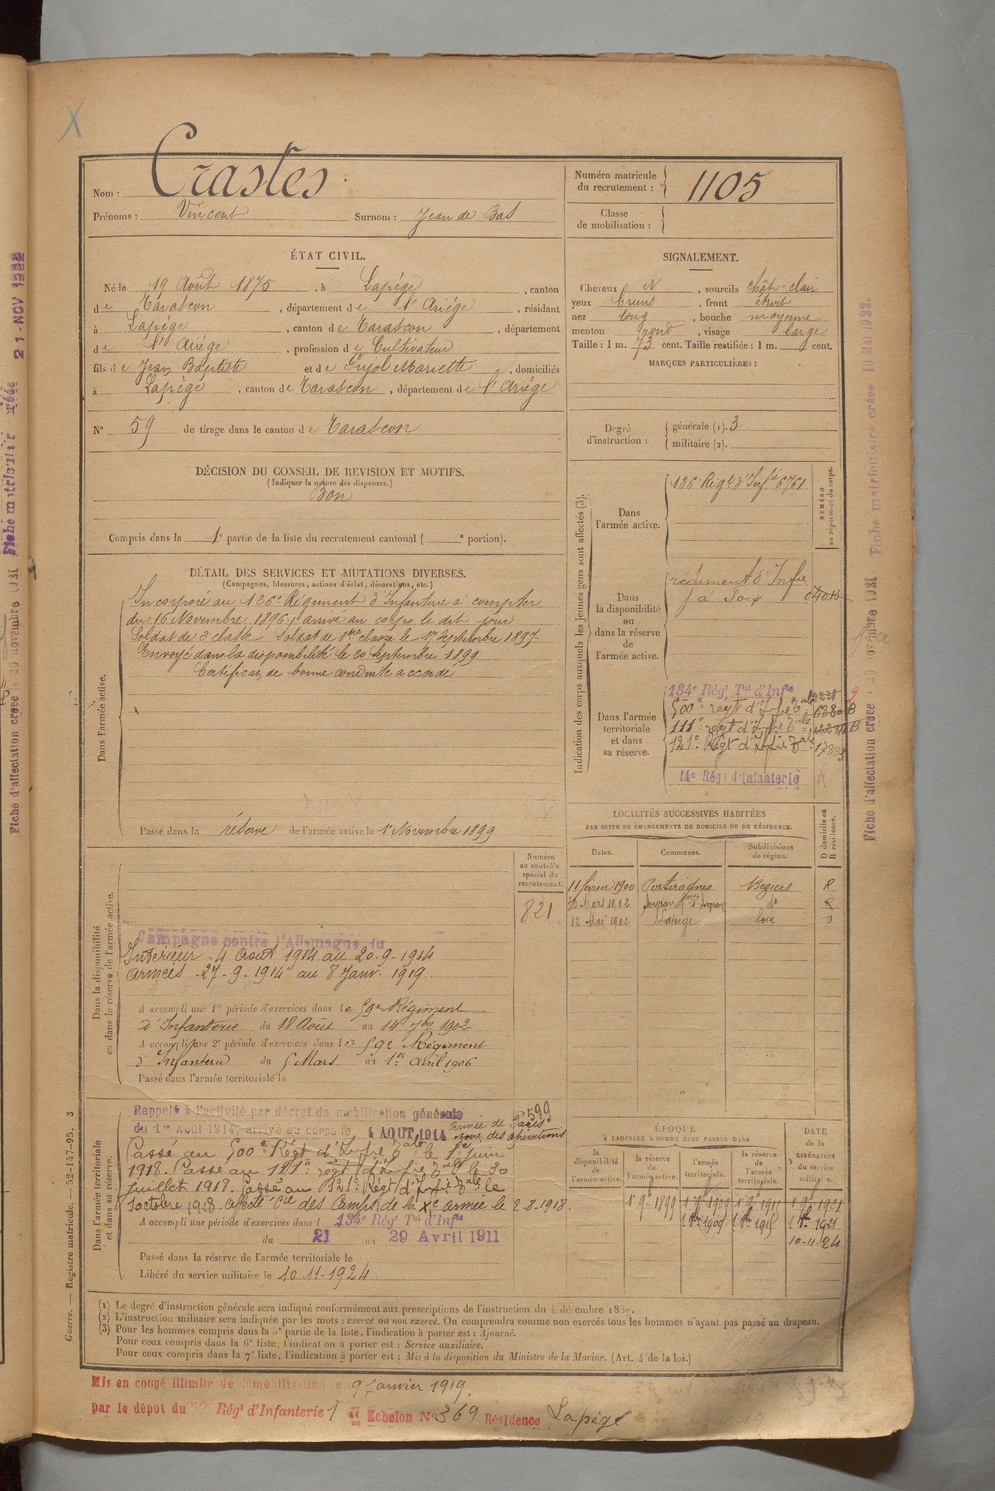 Nom : Crastes
Prénoms : Vincent Surnom : Jean de Bas
Numéro matricule du recrutement : 1105
Classe de mobilisation :
ÉTAT CIVIL.
Né le 19 Août 1875, à Lapège, canton
de Tarascon, département de l'Ariége, résidant
à Lapège, canton de Tarascon, département
de l'Ariége, profession de Cultivateur
fils de Jean Baptiste et de Pujol Mariette, domiciliés
à Lapège, canton de Tarascon, département de l'Ariége
N° 59 de tirage dans le canton de Tarascon
SIGNALEMENT.
Cheveux N, sourcils chât-clair
yeux bruns, front étroit
nez long, bouche moyenne
menton rond, visage large
Taille : 1 m. 73 cent. Taille rectifiée : 1 m. cent.
MARQUES PARTICULIÈRES :
Degré d'instruction : générale (1). 3
militaire (2).
DÉCISION DU CONSEIL DE REVISION ET MOTIFS.
(Indiquer la nature des dispenses.)
Bon
Compris dans la 1e partie de la liste du recrutement cantonal ( e portion).
DÉTAIL DES SERVICES ET MUTATIONS DIVERSES.
(Campagnes, blessures, actions d'éclat, décorations, etc.)
Dans l'armée active.
Incorporé au 126e Régiment d'Infanterie à compter
du 16 Novembre 1896, arrivé au corps le dit jour
Soldat de 2 classe Soldat de 1ère classe le 17 Septembre 1897
Envoyé dans la disponibilité le 20 Septembre 1899
Certificat de bonne conduite accordé
Passé dans la réserve de l'armée active le 1er Novembre 1899
Indication des corps auxquels les jeunes gens sont affectés (3).
Dans l'armée active.
126 Régt d'Infie 6761
NUMÉRO au répertoire du corps.
Dans la disponibilité ou dans la réserve de l'armée active.
régiment d'Infie
à Foix
Dans l'armée territoriale et dans sa réserve.
134e Régt Tal d'Infie
500e régt d'Infie Tale
111e régt d'Infie Tale
121e Régt d'Infie Tale
14e Régt d'Infanterie
LOCALITÉS SUCCESSIVES HABITÉES
PAR SUITE DE CHANGEMENTS DE DOMICILE OU DE RÉSIDENCE.
Dates. Communes. Subdivisions de région. D domicile ou R résidence.
11 février 1900 Portiragnes Béziers R
30 Mars 1902 do R
12 Mai 1902 Lapège Foix D
Dans la disponibilité ou dans la réserve de l'armée active.
Numéro au contrôle spécial du recrutement.
821
Campagne contre l'Allemagne du
Intérieur - 4 Août 1914 au 20-9-1914
Armées - 27-9-1914 au 8 Janv. 1919.
A accompli une 1re période d'exercices dans le 59e Régiment
d'Infanterie du 18 Août au 14 7bre 1902
A accompli une 2e période d'exercices dans le 59e Régiment
d'Infanterie du 5 Mars au 1er Avril 1906
Passé dans l'armée territoriale le
Dans l'armée territoriale et dans sa réserve.
Rappelé à l'activité par décret de mobilisation générale
du 1er Août 1914, arrivé au corps le 4 AOUT 1914
Armée de Paris
zone des opérations
Passé au 500e Régt d'Infie Tale le 1er Juin
1918. Passé au 111e régt d'Infie Tale le 30
Juillet 1918. Passé au 121e Régt d'Infie Tale le
1 octobre 1918. Affecté Cie des Camps de la Xe Armée le 2-8-1918.
A accompli une période d'exercices dans l 134e Régt Tal d'Infie
du 21 au 29 Avril 1911
Passé dans la réserve de l'armée territoriale le
Libéré du service militaire le 10-11-1924.
ÉPOQUE
À LAQUELLE L'HOMME DOIT PASSER DANS
la disponibilité de l'armée active. la réserve de l'armée active. l'armée territoriale. la réserve de l'armée territoriale.
DATE de la LIBÉRATION du service militaire.
1 9bre 1899 1 9bre 1909 1 9bre 1915 1 9bre 1921
10-11-24
(1) Le degré d'instruction générale sera indiqué conformément aux prescriptions de l'instruction du 4 décembre 1889.
(2) L'instruction militaire sera indiquée par les mots : exercé ou non exercé. On comprendra comme non exercés tous les hommes n'ayant pas passé au drapeau.
(3) Pour les hommes compris dans la 5e partie de la liste, l'indication à porter est : Ajourné.
Pour ceux compris dans la 6e liste, l'indication à porter est : Service auxiliaire.
Pour ceux compris dans la 7e liste, l'indication à porter est : Mis à la disposition du Ministre de la Marine. (Art. 4 de la loi.)
Mis en congé illimité de démobilisation le 9 Janvier 1919.
par le dépôt du 59e Régt d'Infanterie Echelon No 369 Résidence Lapège
Guerre. — Registre matricule. — 52-147-95. 3
Fiche d'affectation créée 30 novembre 1921 Fiche matriculaire créée 10 Mai 1922.
Fiche d'affectation créée 30 novembre 1921 Fiche matriculaire créée 21 NOV 1922